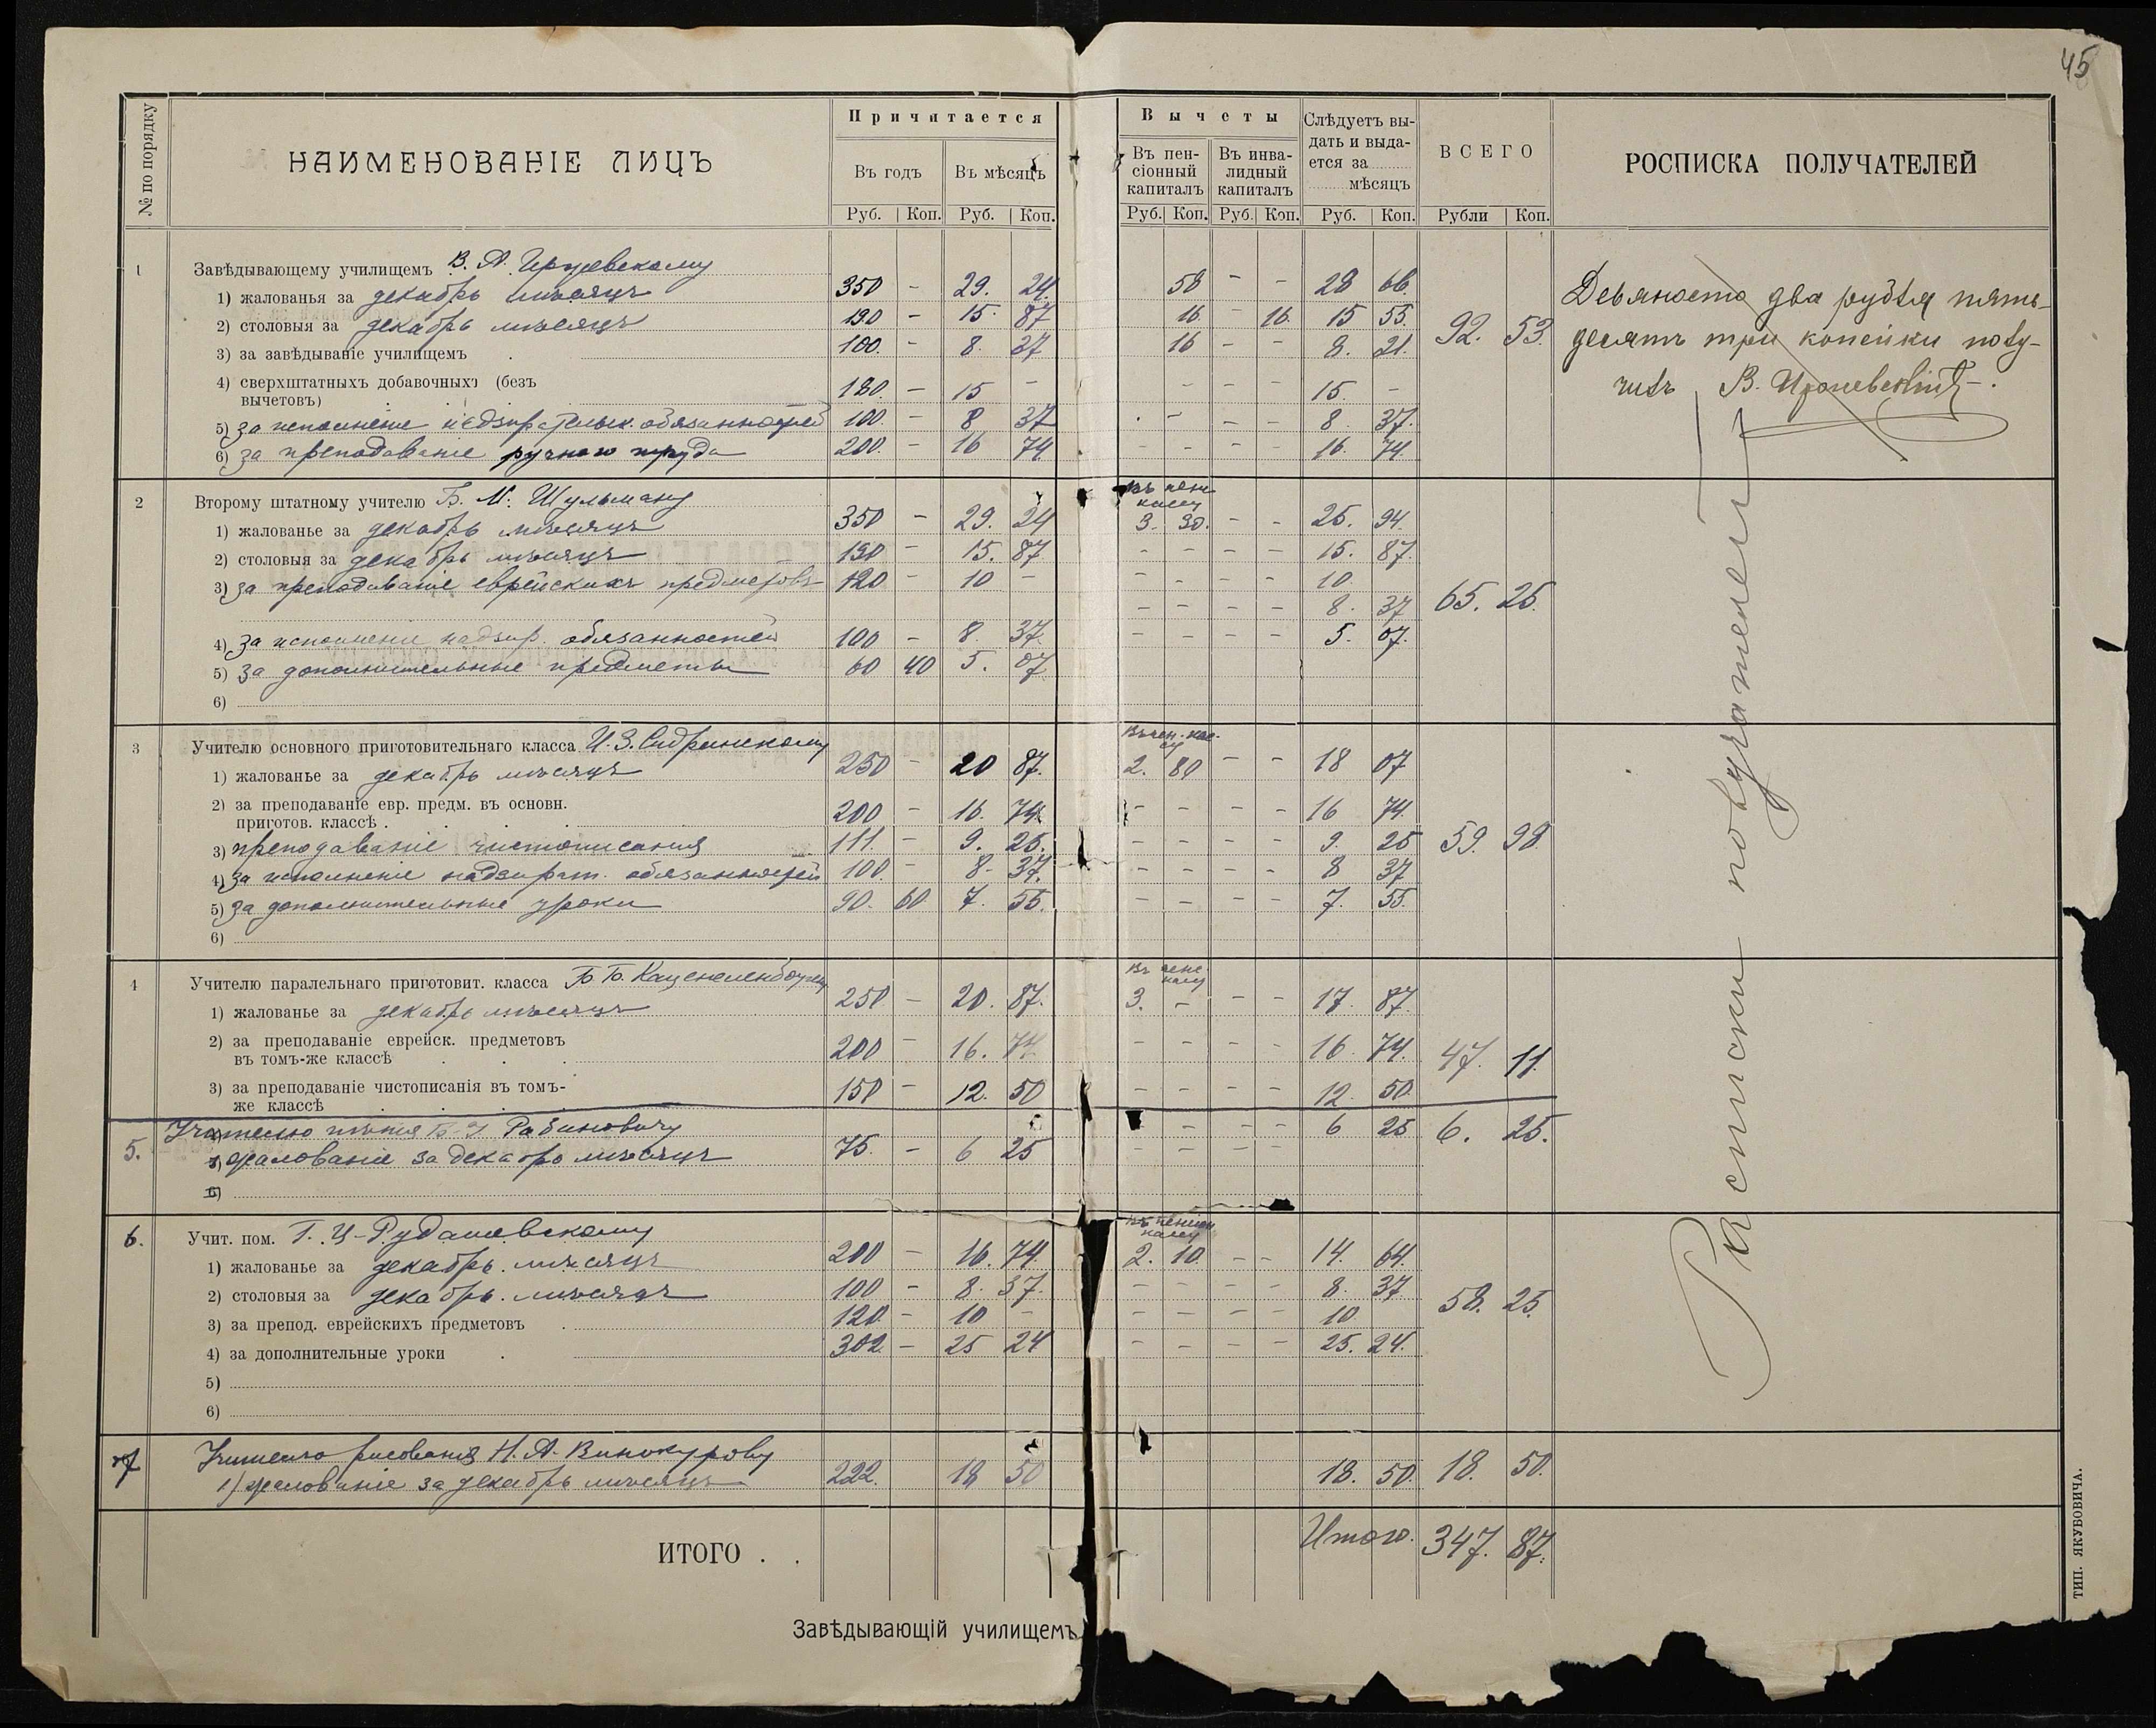 45
№ по порядку
НАИМЕНОВАНІЕ ЛИЦЪ
Причитается
Въ годъ
Въ мѣсяцъ
Руб. Коп. Руб. Коп.
Вычеты
Въ пен-
сіонный
капиталъ
Въ инва-
лидный
капиталъ
Руб. Коп. Руб. Коп.
Слѣдуетъ вы-
дать и выда-
ется за
мѣсяцъ
Руб. Коп.
ВСЕГО
Рубли Коп.
РОСПИСКА ПОЛУЧАТЕЛЕЙ
1 Завѣдывающему училищемъ В. А.
1) жалованья за декабрь мѣсяцъ 350 - 29. 24. 58 - - 28 66.
2) столовыя за декабрь мѣсяцъ 190 - 15. 87 16. - 16. 15 55.
3) за завѣдываніе училищемъ 100. - 8. 37 16 - - 8. 21.
4) сверхштатныхъ добавочныхъ (безъ
вычетовъ) 180. - 15 - - - - - 15. -
5) за исполненіе надзирательск. обязанностей 100. - 8 37 - - - 8. 37.
6) за преподаваніе ручного труда 200. - 16 74 - - - - 16. 74.
92. 53.
Девяносто два рубля пять-
десятъ три копейки полу-
чилъ В.
2 Второму штатному учителю Б. М. Шульману
въ пенс.
кассу
1) жалованье за декабрь мѣсяцъ 350 - 29. 24 3. 30. - - 25. 94.
2) столовыя за декабрь мѣсяцъ 190 - 15. 87 - - - - 15. 87.
3) за преподаваніе еврейскихъ предметовъ 120 - 10 - - - - - 10.
4) за исполненіе надзир. обязанностей 100 - 8. 37. - - - - 8. 37
5) за дополнительные предметы 60 40 5. 07 - - - - 5. 07.
6)
65. 25.
3 Учителю основного приготовительнаго класса И. З.
1) жалованье за декабрь мѣсяцъ 250 - 20 87. 2. 80 - - 18 07
2) за преподаваніе евр. предм. въ основн.
приготов. классѣ 200 - 16. 74. - - - - 16 74.
3) преподаваніе чистописанія 111. - 9. 25. - - - - 9. 25
4) за исполненіе надзират. обязанностей 100. - 8. 37. - - - - 8 37
5) за дополнительные уроки 90. 60 7. 55. - - - - 7. 55.
6)
59. 98
4 Учителю паралельнаго приготовит. класса
1) жалованье за декабрь мѣсяцъ 250 - 20. 87. 3. - - - 17. 87.
2) за преподаваніе еврейск. предметовъ
въ томъ-же классѣ 200 - 16. 74. - - - - 16. 74.
3) за преподаваніе чистописанія въ томъ-
же классѣ 150 - 12. 50 - - - - 12. 50.
47. 11.
5. Учителю пѣнія Рабиновичу
жалованіе за декабрь мѣсяцъ 75. - 6 25 - - - 6 25 6. 25.
6)
6. Учит. пом. Г. Ц. Рудашевскому
1) жалованье за декабрь мѣсяцъ 200 - 16. 74. 2. 10. - - 14. 64.
2) столовыя за декабрь мѣсяцъ 100 - 8. 37. - - - - 8. 37.
3) за препод. еврейскихъ предметовъ 120. - 10 - - - - - 10
4) за дополнительные уроки 302 - 25 24 - - - - 25. 24.
5)
6)
58. 25.
7 Учителю рисованія Н. А. Винокурову
1) жалованіе за декабрь мѣсяцъ 222. 18 50 18. 50. 18. 50.
ИТОГО . .
Итого. 347. 87.
Росписки получателей
Завѣдывающій училищемъ
ТИП. ЯКУБОВИЧА.